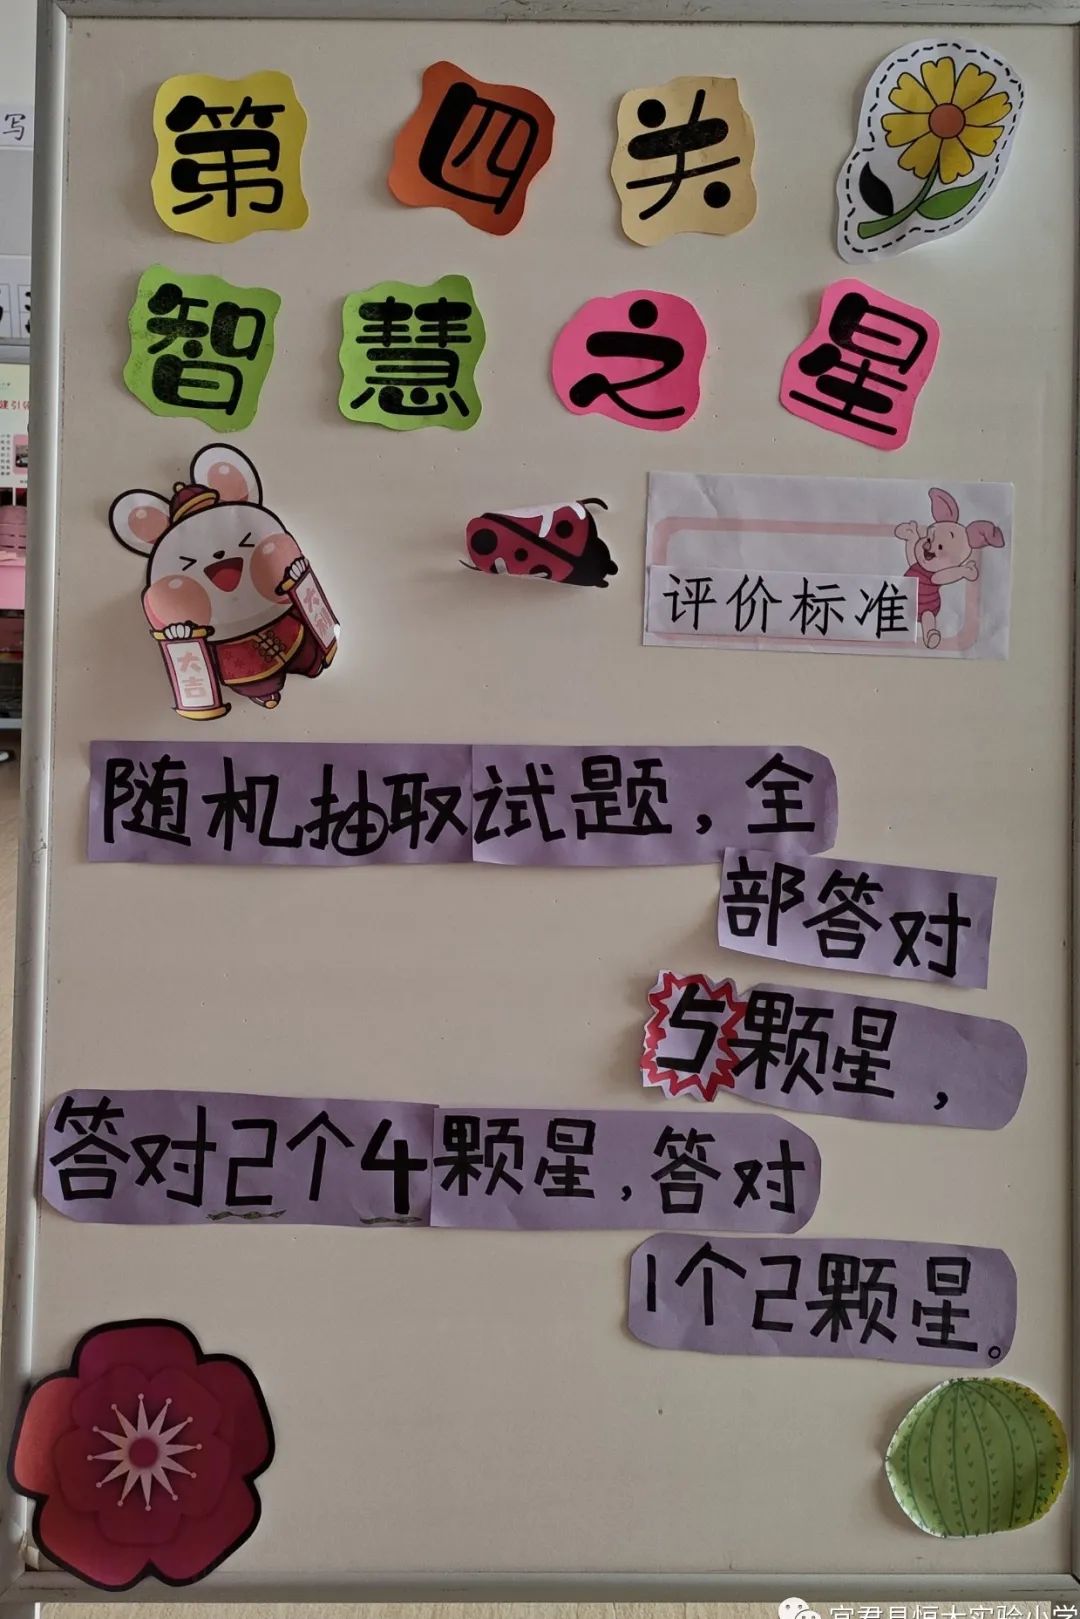 第四关
智慧之星
大吉
评价标准
随机抽取试题，全
部答对
5颗星，
答对2个4颗星，答对
1个2颗星。
写
宜君县恒大实验小学